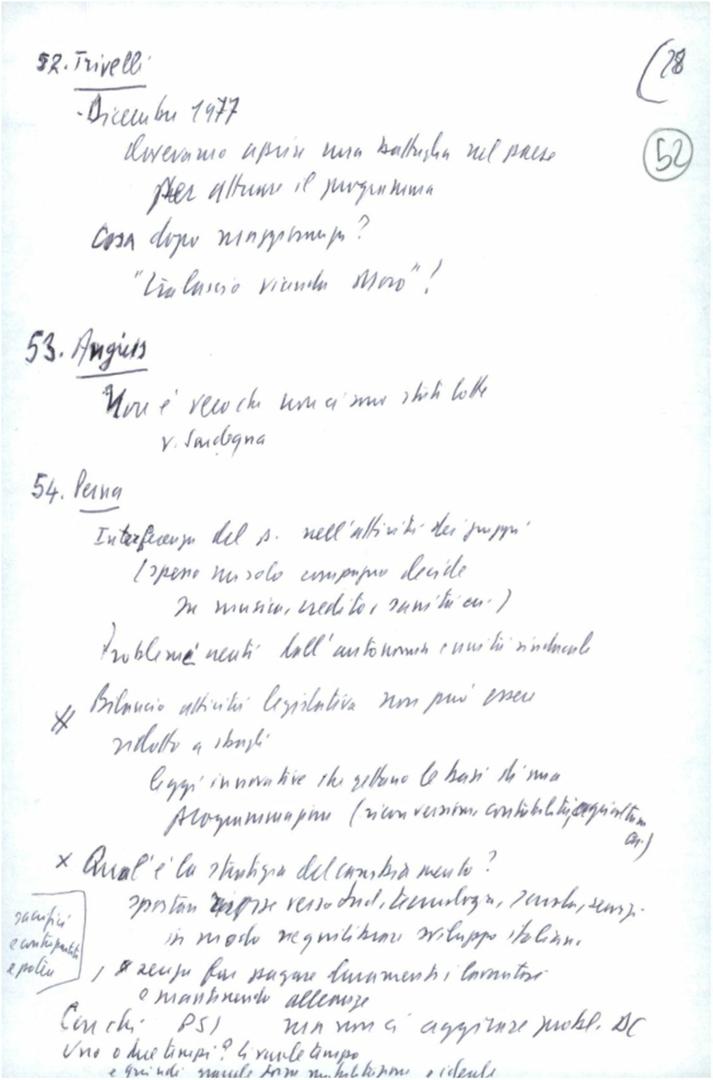 52. Trivelli
(28
- Dicembre 1977
52
dovevamo aprire una battaglia nel paese
per attuare il programma
Cosa dopo maggioranza?
"tralascio vicenda Moro"!
53. Angius
Non è vero che non ci sono stati lotte
v. Sardegna
54. Perna
Interferenza del p. nell'attività dei gruppi
(spesso un solo compagno decide
su musica, credito, sanità ecc.)
Problemi nati dall'autonomia e unità sindacale
Bilancio attività legislativa non può essere
ridotto a sbagli
leggi innovative che gettano le basi di una
programmazione (riconversione contabilità, agricoltura
ecc.)
x Qual'è la strategia del cambiamento?
spostare risorse verso Sud, tecnologia, scuola, servizi
in modo riequilibrare sviluppo italiano
sacrifici
e contropartite
e potere
, senza far pagare duramente i lavoratori
e mantenendo alleanze
Con chi PSI ma non ci aggirare probl. DC
Uno o due tempi? Ci vuole tempo
e quindi grande mobilitazione e ideale